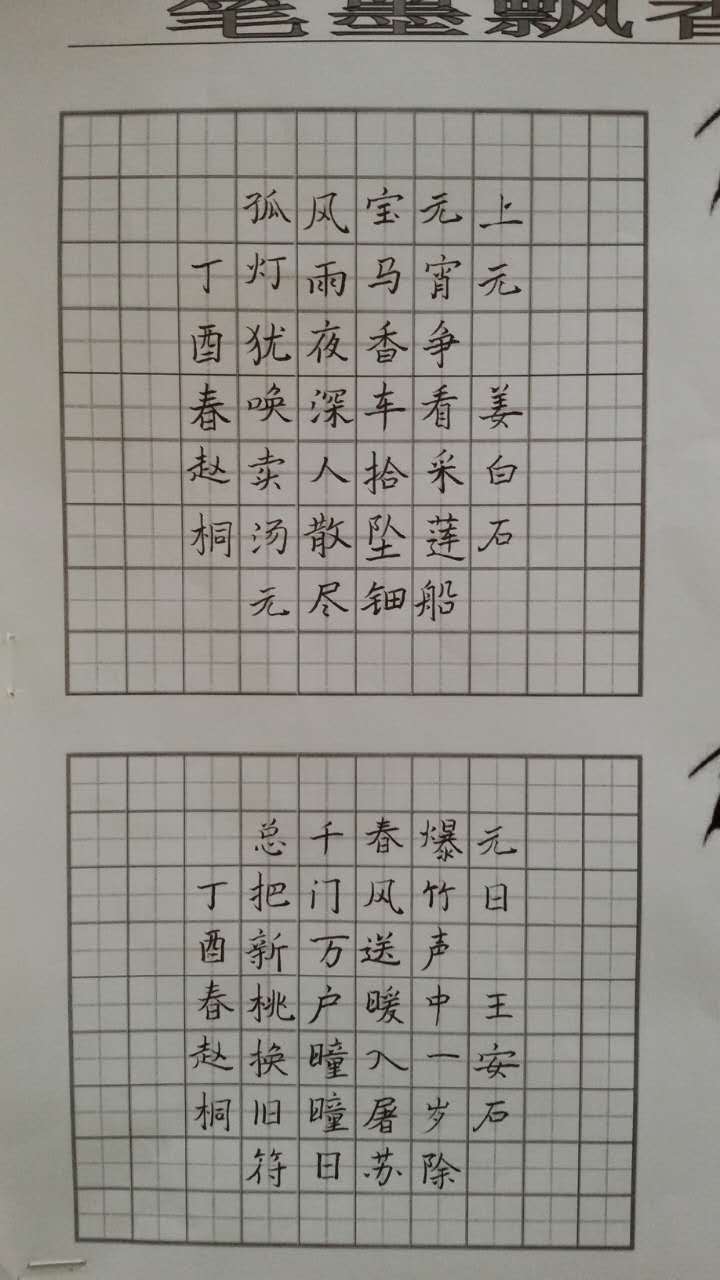 笔墨飘香
上元 姜白石
元宵争看采莲船
宝马香车拾坠钿
风雨夜深人散尽
孤灯犹唤卖汤元
丁酉春赵桐
元日 王安石
爆竹声中一岁除
春风送暖入屠苏
千门万户曈曈日
总把新桃换旧符
丁酉春赵桐